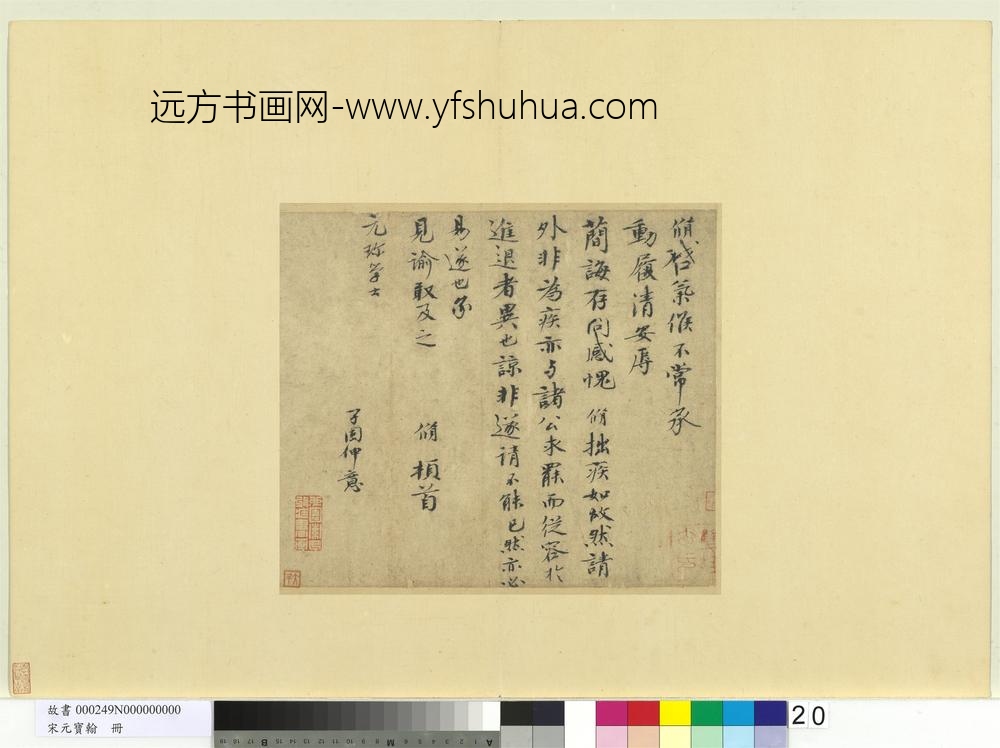 远方书画网-www.yfshuhua.com
脩啓氣候不常承
動履清安辱
簡誨存問感愧 脩拙疾如故然請
外非為疾亦与諸公求罷而從容於
進退者異也諒非遂請不能已然亦必
易遂也
見諭敢及之 脩 頓首
元珍學士
故書 000249N000000000
宋元寶翰 冊
20